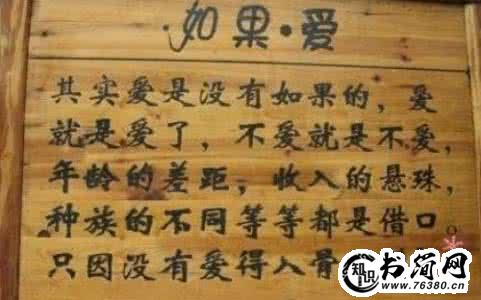 如果·爱
其实爱是没有如果的，爱
就是爱了，不爱就是不爱，
年龄的差距，收入的悬珠，
种族的不同等等都是借口。
只因没有爱得入骨
知识
书简网
www.76380.cn